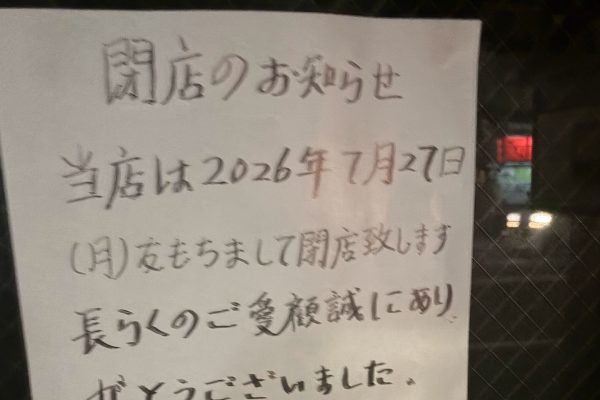 閉店のお知らせ
当店は2026年7月27日
(月)をもちまして閉店致します
長らくのご愛顧誠にあり
がとうございました。